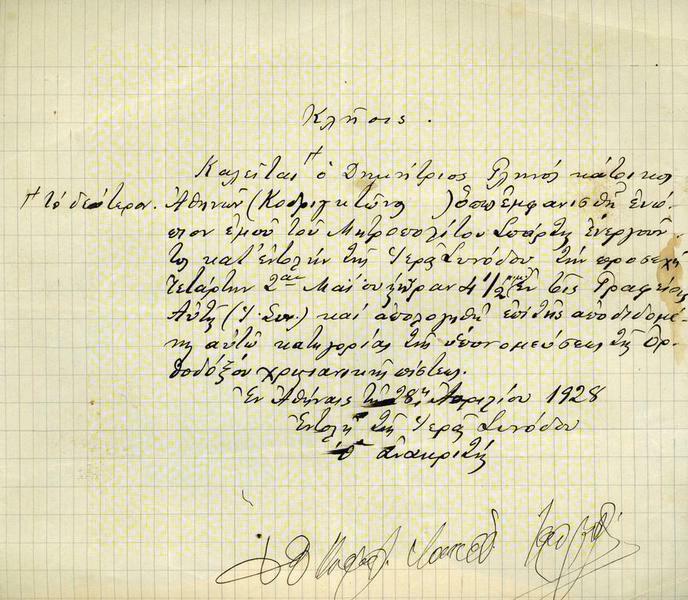 Κλῆσις.
Καλεῖται + ὁ Δημήτριος Γληνός κάτοικος
+ τὸ δεύτερον. Ἀθηνῶν (Κοδριγκτῶνος ) ὅπως ἐμφανισθῇ ἐνώ-
πιον ἐμοῦ τοῦ Μητροπολίτου Σπάρτης ἐνεργοῦν-
τος κατ' ἐντολὴν τῆς Ἱερᾶς Συνόδου τὴν προσεχῆ
Τετάρτην 2αν Μαΐου ὥραν 4 1/2 μ.μ. ἐν τοῖς Γραφείοις
Αὐτῆς (Ἱ. Συν.) καὶ ἀπολογηθῇ ἐπὶ τῆς ἀποδιδομέ-
νης αὐτῷ κατηγορίας τῆς ὑπονομεύσεως τῆς Ὀρ-
θοδόξου χριστιανικῆς πίστεως.
Ἐν Ἀθήναις τῇ 28ῃ Ἀπριλίου 1928
Ἐντολῇ τῆς Ἱερᾶς Συνόδου
ὁ ἀνακριτής